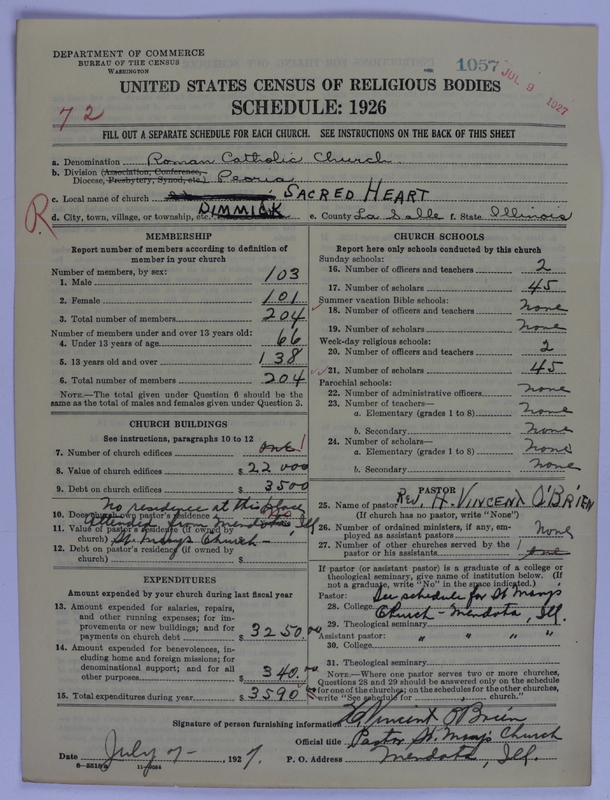 DEPARTMENT OF COMMERCE
BUREAU OF THE CENSUS
WASHINGTON
1057
JUL 9 1927
UNITED STATES CENSUS OF RELIGIOUS BODIES
72
SCHEDULE: 1926
FILL OUT A SEPARATE SCHEDULE FOR EACH CHURCH. SEE INSTRUCTIONS ON THE BACK OF THIS SHEET
a. Denomination Roman Catholic Church
b. Division (Association, Conference,
Diocese, Presbytery, Synod, etc.) Peoria
c. Local name of church SACRED HEART
R
d. City, town, village, or township, etc. DIMMICK e. County La Salle f. State Illinois
MEMBERSHIP
Report number of members according to definition of
member in your church
Number of members, by sex:
1. Male 103
2. Female 101
3. Total number of members 204
Number of members under and over 13 years old:
4. Under 13 years of age 66
5. 13 years old and over 138
6. Total number of members 204
NOTE.—The total given under Question 6 should be
the same as the total of males and females given under Question 3.
CHURCH BUILDINGS
See instructions, paragraphs 10 to 12
7. Number of church edifices one 1
8. Value of church edifices $ 22000
9. Debt on church edifices $ 3500
No residence at this place
10. Does church own pastor's residence
Attended from Mendota Ill
11. Value of pastor's residence (if owned by
church) St. Marys Church -
12. Debt on pastor's residence (if owned by
church) $
EXPENDITURES
Amount expended by your church during last fiscal year
13. Amount expended for salaries, repairs,
and other running expenses; for im-
provements or new buildings; and for
payments on church debt $ 3250.00
14. Amount expended for benevolences, in-
cluding home and foreign missions; for
denominational support; and for all
other purposes $ 340.00
15. Total expenditures during year $ 3590
CHURCH SCHOOLS
Report here only schools conducted by this church
Sunday schools:
16. Number of officers and teachers 2
17. Number of scholars 45
Summer vacation Bible schools:
18. Number of officers and teachers none
19. Number of scholars none
Week-day religious schools:
20. Number of officers and teachers 2
21. Number of scholars 45
Parochial schools:
22. Number of administrative officers none
23. Number of teachers—
a. Elementary (grades 1 to 8) none
b. Secondary none
24. Number of scholars—
a. Elementary (grades 1 to 8) none
b. Secondary none
PASTOR
25. Name of pastor Rev. H. VINCENT O'BRIEN
(If church has no pastor, write "None")
26. Number of ordained ministers, if any, em-
ployed as assistant pastors none
27. Number of other churches served by the
pastor or his assistants 1 one
If pastor (or assistant pastor) is a graduate of a college or
theological seminary, give name of institution below. (If
not a graduate, write "No" in the space indicated.)
Pastor: See schedule for St Marys
28. College Church - Mendota, Ill.
29. Theological seminary
Assistant pastor: " " " "
30. College
31. Theological seminary
NOTE.—Where one pastor serves two or more churches,
Questions 28 and 29 should be answered only on the schedule
for one of the churches; on the schedules for the other churches,
write "See schedule for church."
Signature of person furnishing information H Vincent O'Brien
Official title Pastor St. Marys Church
Date July 7-, 1927. P. O. Address Mendota, Ill.